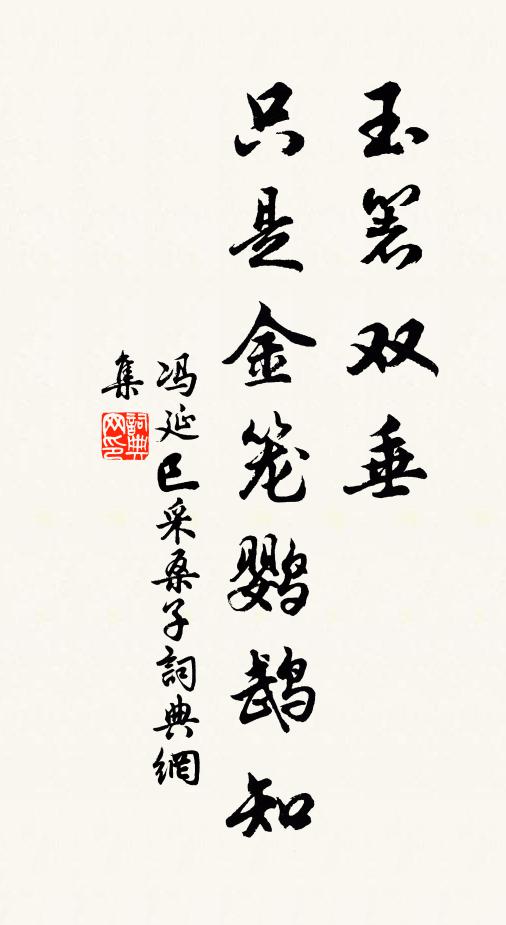 玉箸双垂
只是金笼鹦鹉知
冯延巳采桑子詞典網
集
詞典网印